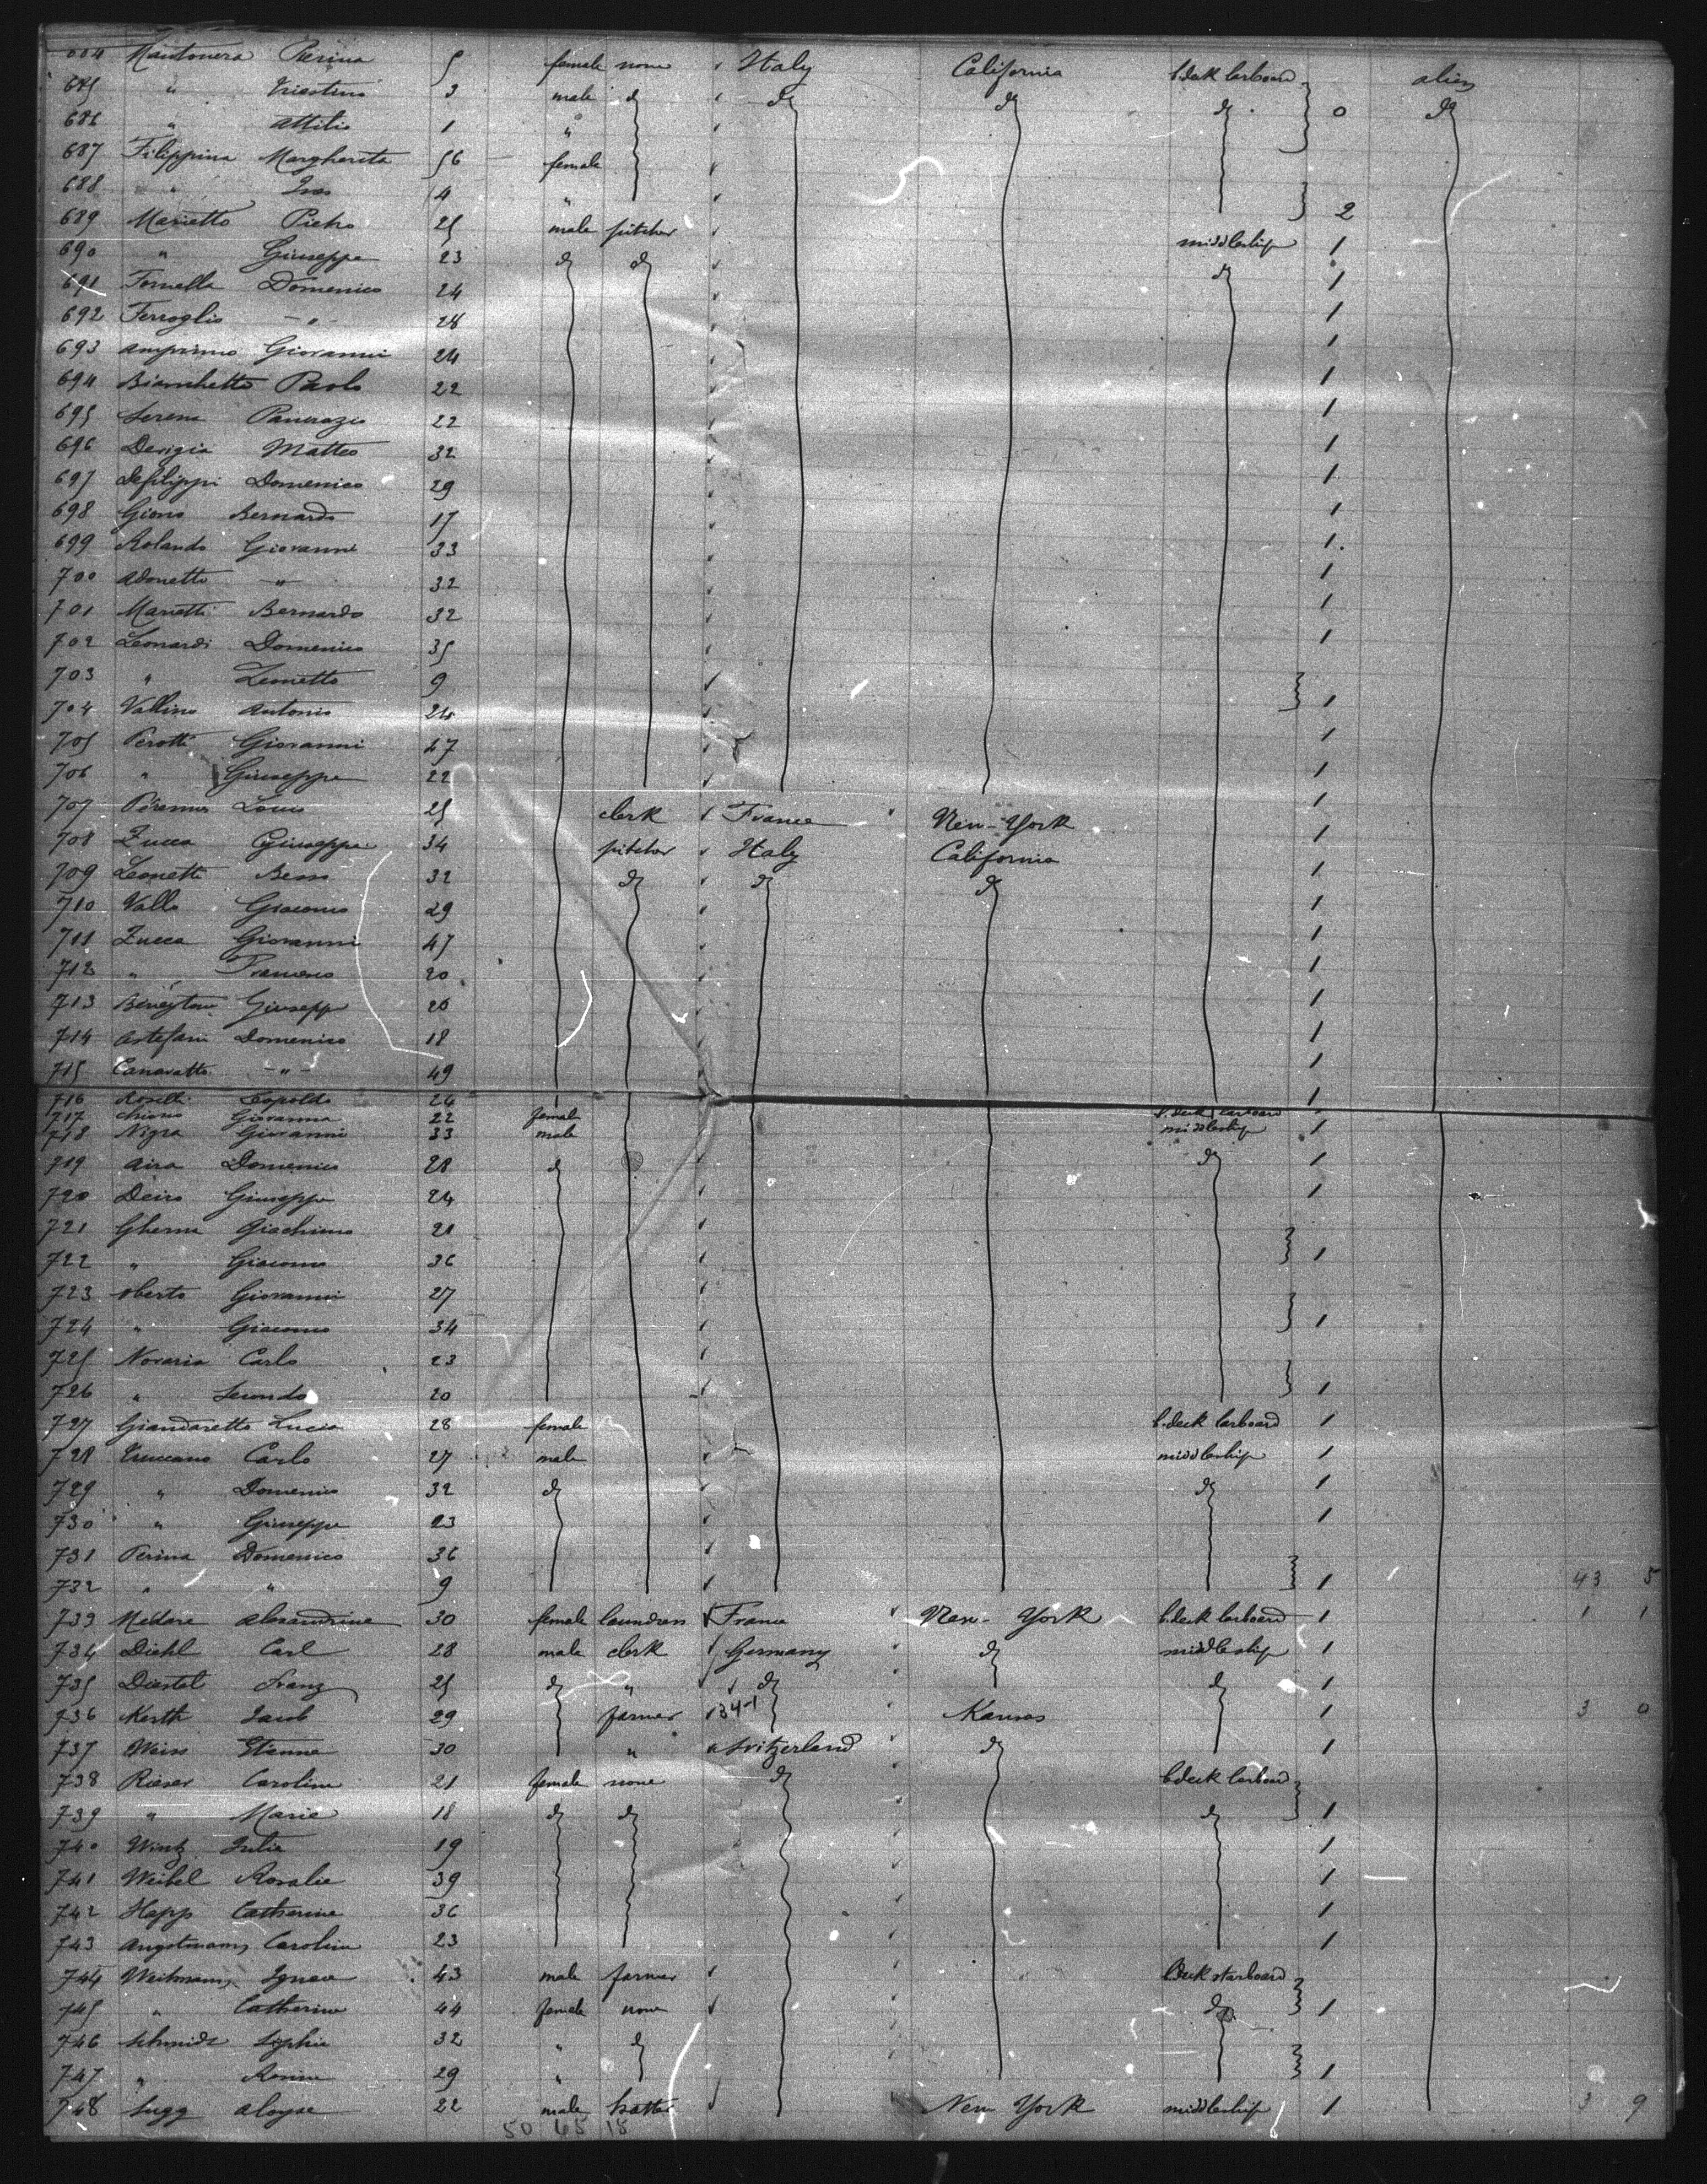 684 Mautonera Pierina 5 female none ✓ Italy California b.deck larboard alien
685 " Triestino 3 male do ✓ do do do 0 do
686 " Attilio 1 " ✓
687 Filippina Margherita 56 female ✓
688 " Ines 4 " ✓ 2
689 Marietto Pietro 25 male pitcher ✓ middleship 1
690 " Giuseppe 23 do do ✓ do 1
691 Fornella Domenico 24 ✓ 1
692 Ferroglio " 28 ✓ 1
693 Amprimo Giovanni 24 ✓ 1
694 Bianchetto Paolo 22 ✓ 1
695 Serena Pancrazio 22 ✓ 1
696 Derigia Matteo 32 ✓ 1
697 Defilippi Domenico 29 ✓ 1
698 Giono Bernardo 17 ✓ 1
699 Rolando Giovanni 33 ✓ 1
700 Adonetto " 32 ✓ 1
701 Marietti Bernardo 32 ✓ 1
702 Leonardi Domenico 35 ✓ 1
703 " 9 ✓
704 Vallino Antonio 24 ✓ 1
705 Perotti Giovanni 47 ✓ 1
706 " Giuseppe 22 ✓ 1
707 Louis 25 clerk ✓ France New-York 1
708 Zucca Giuseppe 34 pitcher ✓ Italy California 1
709 Leonetti Bess 32 do ✓ do do 1
710 Vallo Giacomo 29 ✓ 1
711 Zucca Giovanni 47 ✓ 1
712 " Francesco 20 ✓ 1
713 Giuseppe 26 ✓ 1
714 Astefani Domenico 18 ✓ 1
715 Canavatto " 49 ✓ 1
716 Roselli Leopoldo 24 1
717 Chiono Giovanna 22 female b.deck larboard
718 Nigra Giovanni 33 male middleship 1
719 Aira Domenico 28 do do 1
720 Deiro Giuseppe 24 ✓ 1
721 Gherna Giachimo 21 ✓
722 " Giacomo 36 ✓ 1
723 Oberto Giovanni 27 ✓
724 " Giacomo 34 ✓ 1
725 Novaria Carlo 23 ✓
726 " Secondo 20 ✓ 1
727 Giandaretto Lucia 28 female b.deck larboard 1
728 Truccano Carlo 27 male ✓ middleship 1
729 " Domenico 32 do ✓ do 1
730 " Giuseppe 23 ✓ 1
731 Perina Domenico 36 ✓
732 " " 9 ✓ 1 43 5
733 Medare Alexandrine 30 female laundress ✓ France New-York b.deck larboard 1 1 1
734 Diehl Carl 28 male clerk ✓ Germany do middleship 1
735 Diestel Franz 25 do " ✓ do do 1
736 Kerth Jacob 29 farmer ✓ 34-1 Kansas 1 3 0
737 Weiss Etienne 30 " Switzerland do 1
738 Rieser Caroline 21 female none do b.deck larboard
739 " Marie 18 do do do 1
740 Wintz Julie 19 1
741 Weibel Rosalie 39 1
742 Happ Catherine 36 1
743 Angstmann Caroline 23 1
744 Weitmann Ignace 43 male farmer ✓ b.deck starboard
745 " Catherine 44 female none ✓ do 1
746 Schmidt Sophie 32 " do
747 " Rosine 29 " 1
748 Sugg Aloyse 22 male hatter ✓ New York middleship 1 3 9
50 65 15